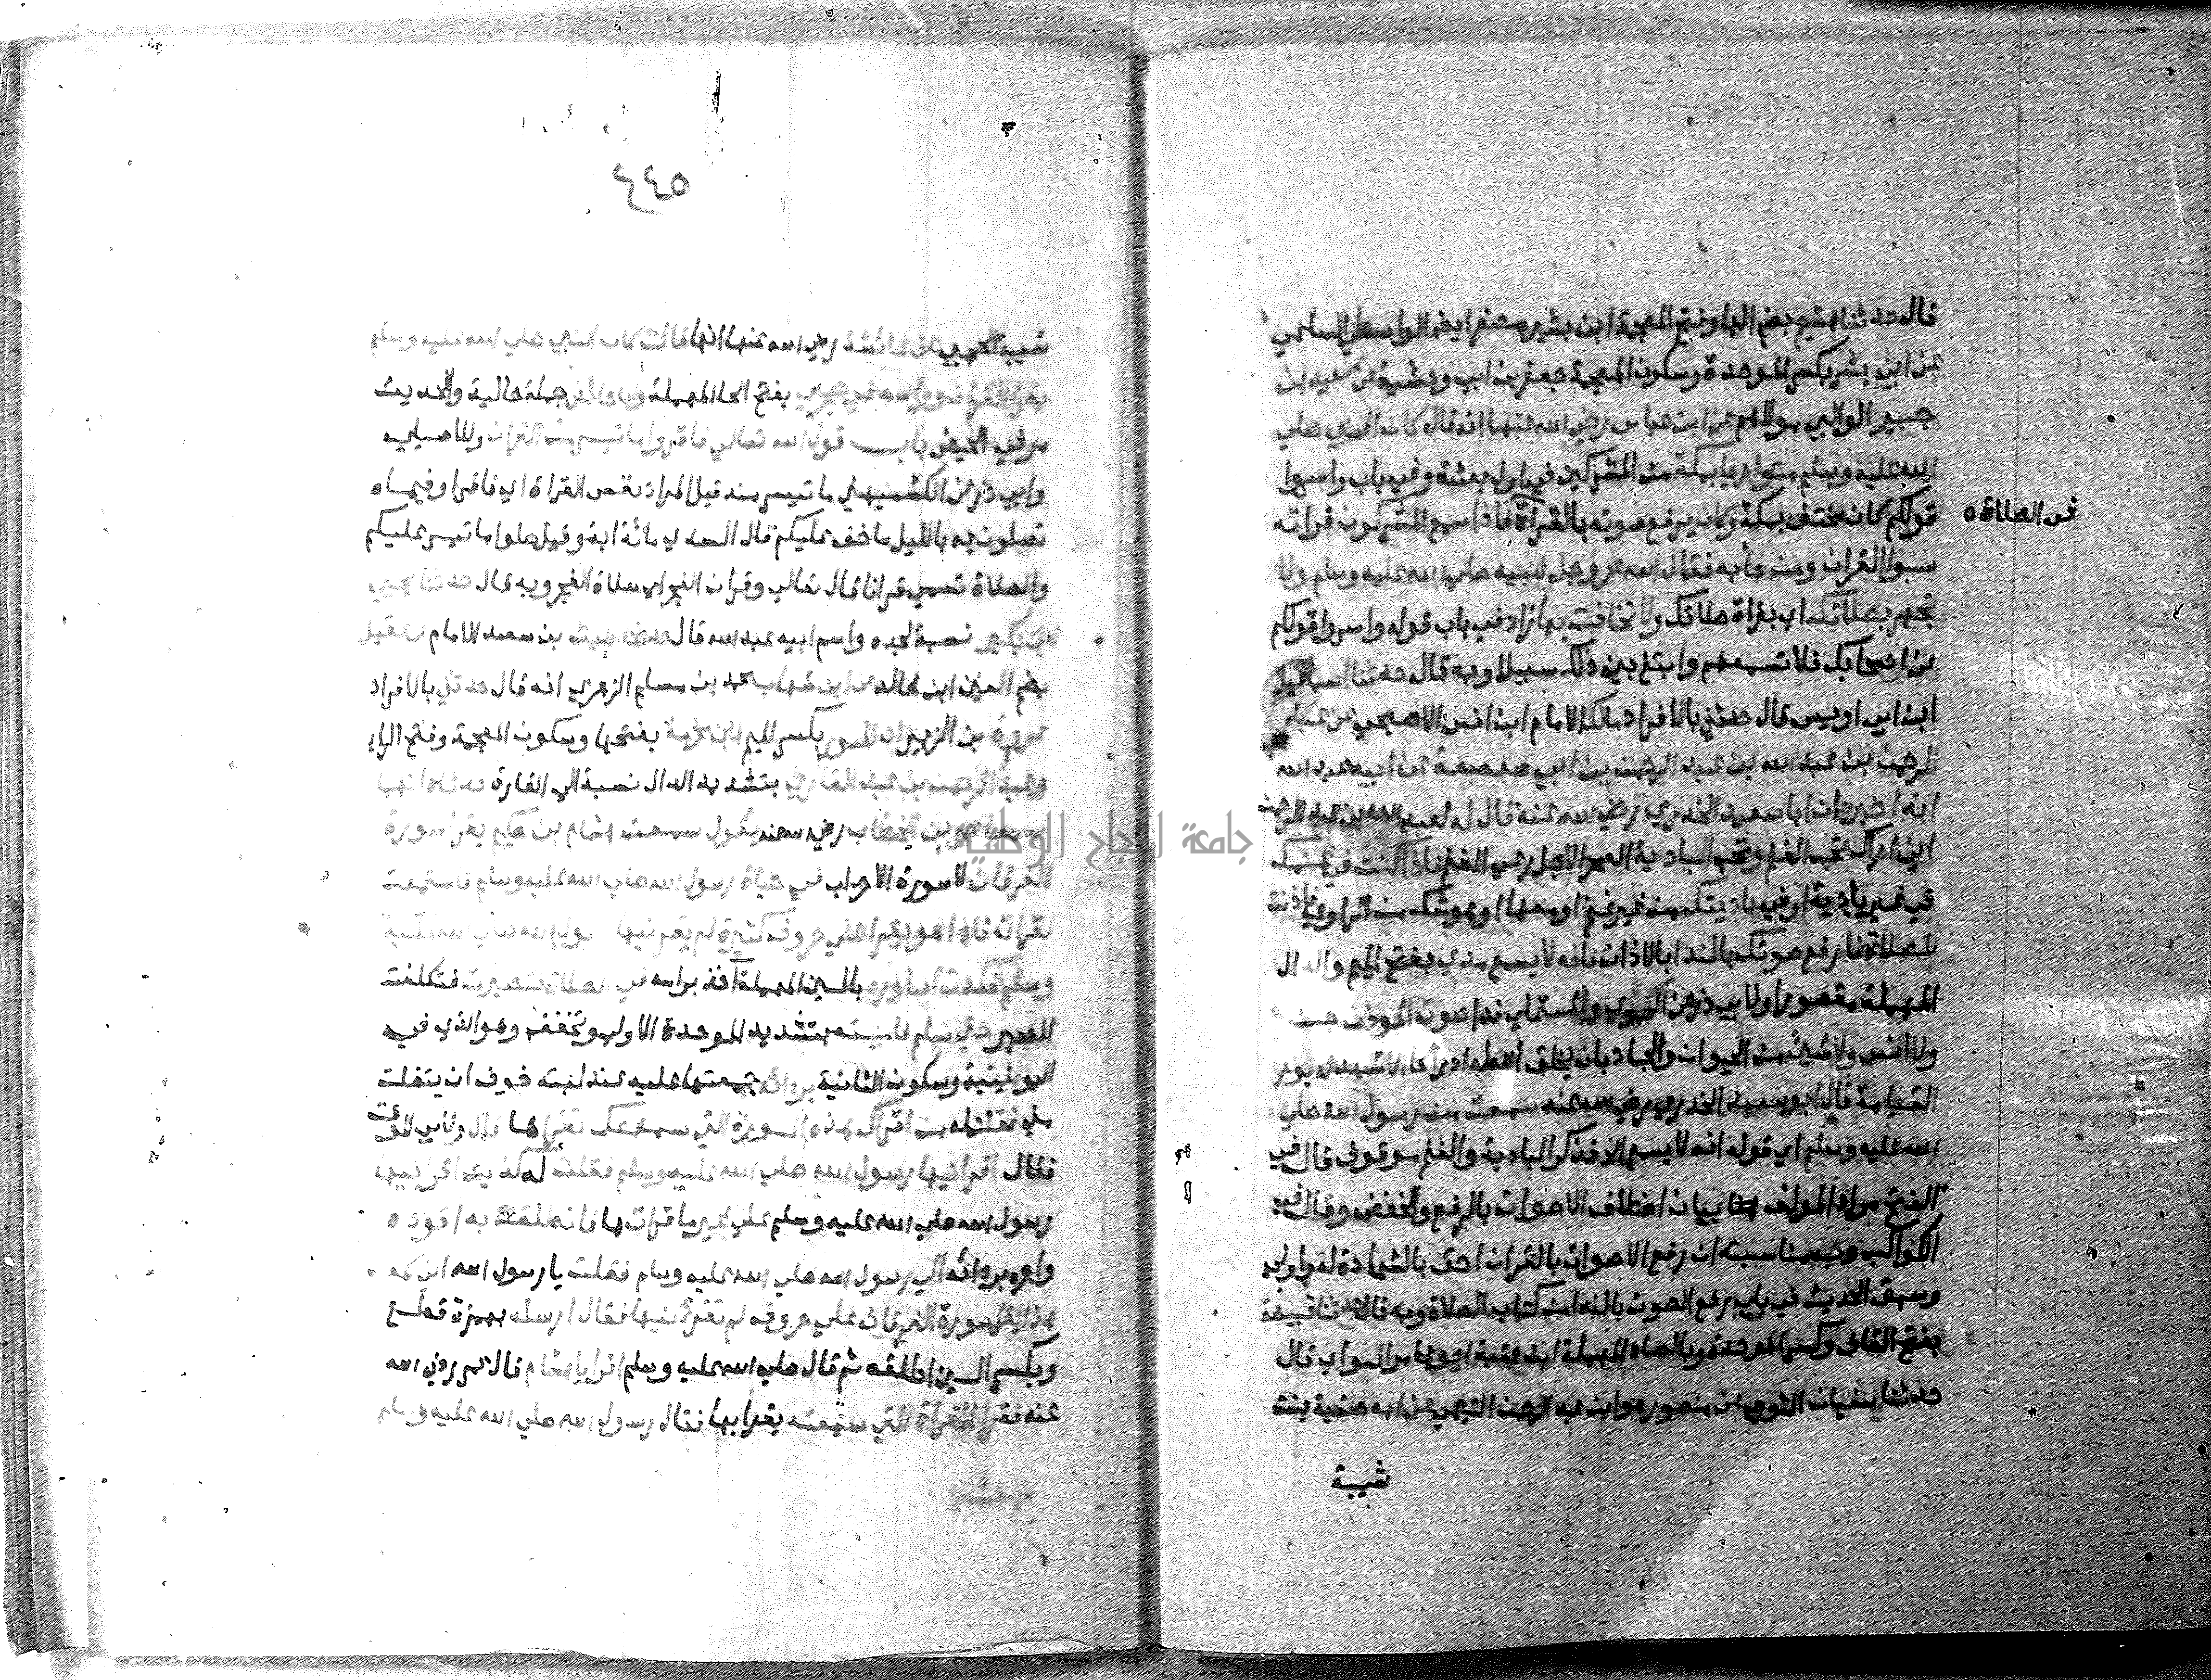 قال حدثنا هشيم بضم الها وفتح المعجمة ابن بشير مصغرا ايضا الواسطي السلمي
عن ابي بشر بكسر الموحدة وسكون المعجمة جعفر بن ابي وحشية عن سعيد بن
جبير الوالبي مولاهم عن ابن عباس رضي الله عنهما انه قال كان النبي صلي
الله عليه وسلم متواريا بمكة من المشركين في اول بعثته وفي باب واسروا
قولكم كان مختف بمكة وكان يرفع صوته بالقراة فاذا سمع المشركون قراته
في الصلاة
سبوا القران ومن جا به فقال الله عز وجل لنبيه صلي الله عليه وسلم ولا
تجهر بصلاتك اي بقراة صلاتك ولا تخافت بها زاد في باب قوله واسروا قولكم
عن اصحابك فلا تسمعهم وابتغ بين ذلك سبيلا وبه قال حدثنا اسماعيل
ابن ابي اويس قال حدثني بالافراد مالك الامام ابن انس الاصبحي عن عبد
الرحمن بن عبد الله بن عبد الرحمن بن ابي صعصعة عن ابيه عبد الله
انه اخبره ان ابا سعيد الخدري رضي الله عنه قال له لعبد الله بن عبد الرحمن
اني اراك تحب الغنم وتحب البادية الصحرا لاجل رعي الغنم فاذا كنت في غنمك
في غير بادية او في باديتك من غير غنم او معها او هو شك من الراوي فاذنت
للصلاة فارفع صوتك بالندا بالاذان فانه لا يسمع مدي بفتح الميم والدال
المهملة مقصورا ولابي ذر عن الحموي والمستملي ندا صوت الموذن جن
ولا انس ولا شيئ من الحيوان والجماد بان يخلق الله له ادراكا الا شهد له يوم
القيامة قال ابو سعيد الخدري رضي الله عنه سمعته من رسول الله صلي
الله عليه وسلم اي قوله انه لا يسمع الخ فذكر البادية والغنم موقوف قال في
الفتح مراد المولف هنا بيان اختلاف الاصوات بالرفع والخفض وقال في
الكواكب وجه مناسبته ان رفع الاصوات بالقران احق بالشهادة له واولي
وسبق الحديث في باب رفع الصوت بالندا من كتاب الصلاة وبه قال حدثنا قبيصة
بفتح القاف وكسر الموحدة وبالصاد المهملة ابن عقبة ابو عامر السواي قال
حدثنا سفيان الثوري عن منصور هو ابن عبد الرحمن التيمي عن امه صفية بنت
شيبة
٤٤٥
شيبة الحجبي عن عائشة رضي الله عنها انها قالت كان النبي صلي الله عليه وسلم
يقرا القران وراسه في حجري بفتح الحا المهملة وانا حائض جملة حالية والحديث
مر في الحيض باب قول الله تعالي فاقروا ما تيسر من القران وللاصيلي
وابي ذر عن الكشميهني ما تيسر منه قيل المراد نفس القراة اي فاقرا وفيما
تصلون به بالليل ما خف عليكم قال السدي مائة اية وقيل صلوا ما تيسر عليكم
والصلاة تسمي قرانا قال تعالي وقران الفجر اي صلاة الفجر وبه قال حدثنا يحيي
ابن بكير نسبة لجده واسم ابيه عبد الله قال حدثنا الليث بن سعد الامام عن عقيل
بضم العين ابن خالد عن ابن شهاب محمد بن مسلم الزهري انه قال حدثني بالافراد
عروة بن الزبير ان المسور بكسر الميم ابن مخرمة بفتحها وسكون المعجمة وفتح الراء
وعبد الرحمن بن عبد القاري بتشديد الدال نسبة الي القارة حدثاه انهما
سمعا عمر بن الخطاب رضي الله عنه يقول سمعت هشام بن حكيم يقرا سورة
الفرقان لا سورة الاحزاب في حياة رسول الله صلي الله عليه وسلم فاستمعت
لقراته فاذا هو يقرا علي حروف كثيرة لم يقرئنيها رسول الله صلي الله عليه
وسلم فكدت اساوره بالسين المهملة اخذ براسه في الصلاة فتصبرت فتكلفت
الصبر حتي سلم فلببته بتشديد الموحدة الاولي وتخفف وهو الذي في
اليونينية وسكون الثانية بردائه جمعتها عليه عند لبته خوف ان ينفلت
مني فقلت له من اقراك هذه السورة التي سمعتك تقراها قال
فقال اقرانيها رسول الله صلي الله عليه وسلم فقلت له كذبت اقرانيها
رسول الله صلي الله عليه وسلم علي غير ما قرات بها فانطلقت به اقوده
واجره بردائه الي رسول الله صلي الله عليه وسلم فقلت يا رسول الله اني سمعت
هذا يقرا سورة الفرقان علي حروف لم تقرئنيها فقال ارسله بهمزة قطع
وبكسر السين اطلقه ثم قال صلي الله عليه وسلم اقرا يا هشام قال عمر رضي الله
عنه فقرا القراة التي سمعته يقرا بها فقال رسول الله صلي الله عليه وسلم
جامعة النجاح الوطنية